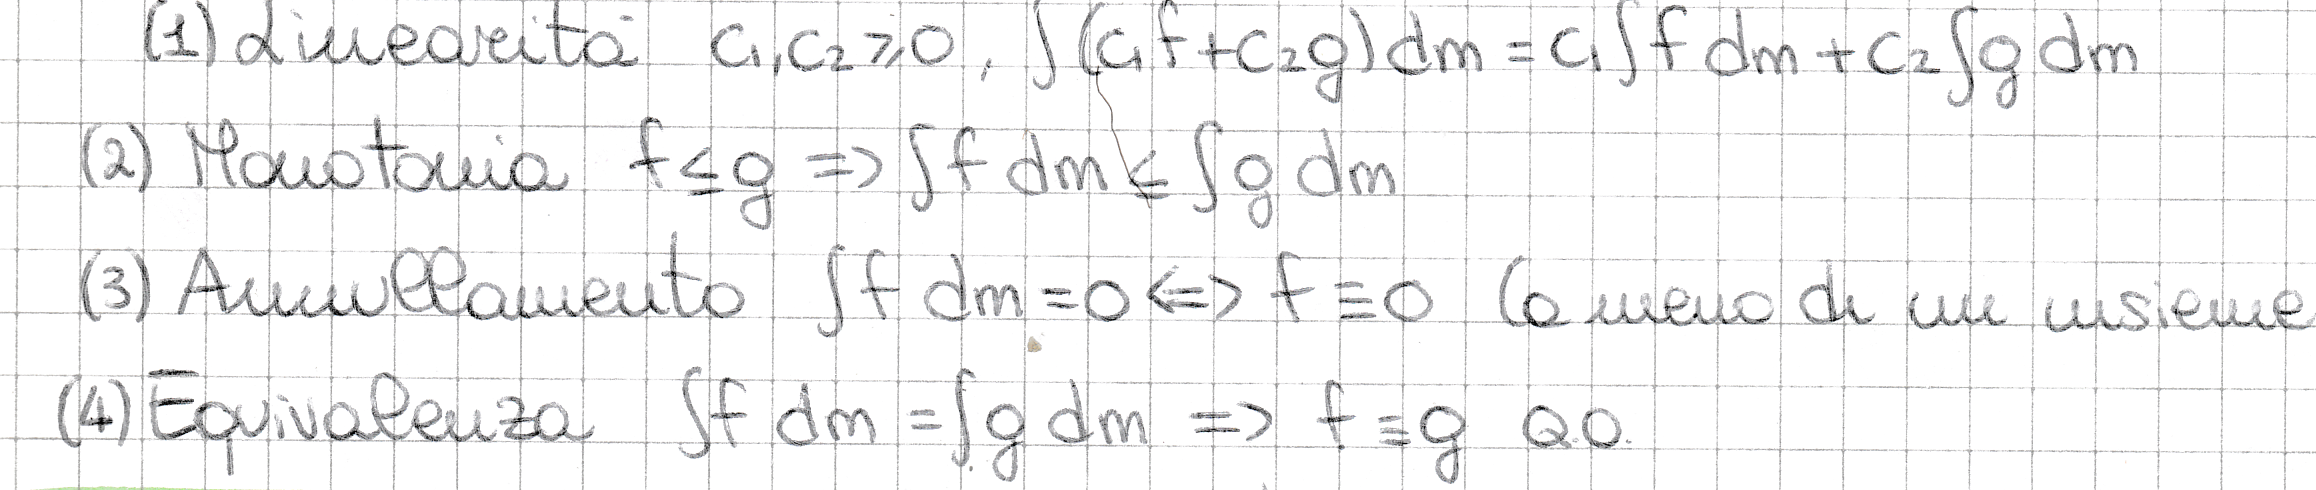 (1) Linearità c₁,c₂⩾0, ∫(c₁f+c₂g)dm=c₁∫f dm+c₂∫g dm
(2) Monotonia f≤g => ∫f dm ≤ ∫g dm
(3) Annullamento ∫f dm=0<=> f≡0 (a meno di un insieme
(4) Equivalenza ∫f dm=∫g dm => f≡g Q.O.